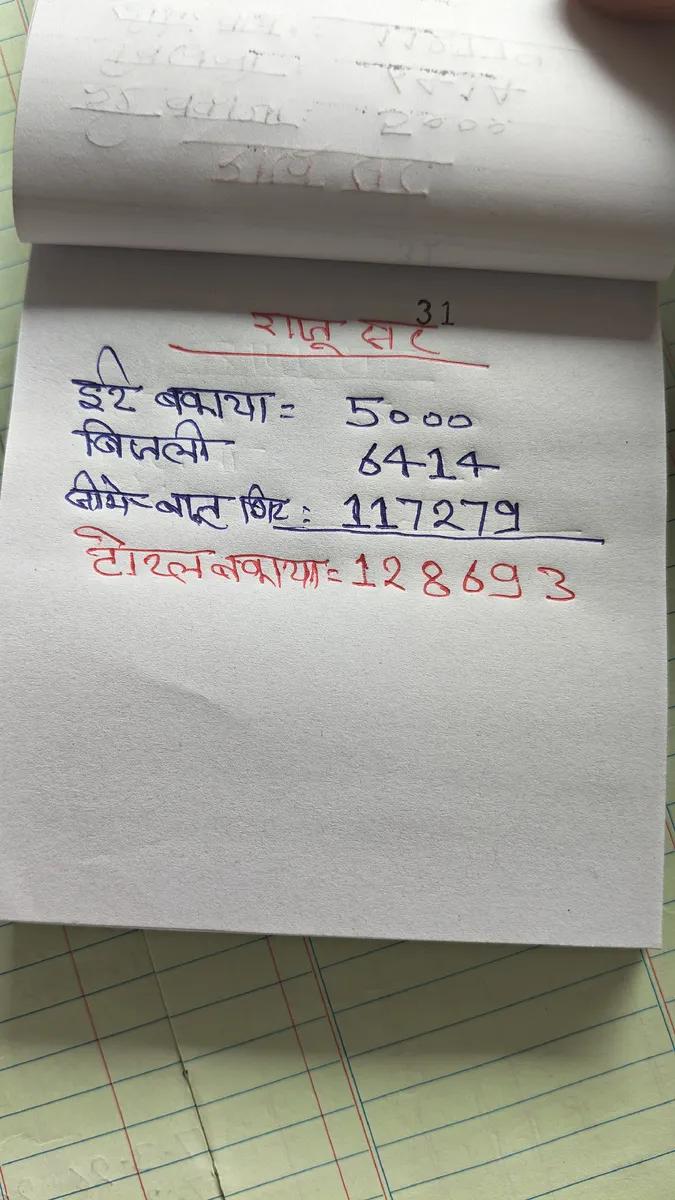 31
राजू सर
ईंट बकाया = 5000
बिजली 6414
बालू गिट : 117279
टोटल बकाया = 128693